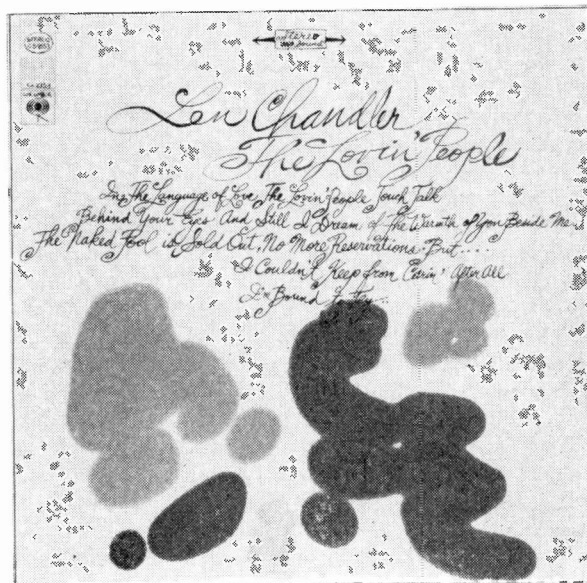 Stereo
Len Chandler
The Lovin' People
In The Language of Love, The Lovin' People Touch Talk
Behind Your Eyes And Still I Dream of The Warmth of You Beside Me
The Naked Pool is Sold Out, No More Reservations But....
I Couldn't Keep from Carin' After All
I'm Bound to Try...